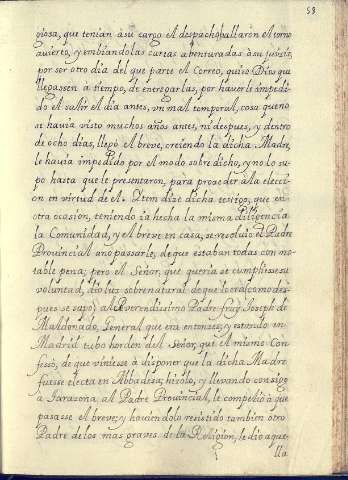 58
giosa, que tenian à su cargo el despacho, hallaron el torno
auierto, y embiandolas cartas abenturadas à su juicio,
por ser otro dia del que parte el Correo, quiso Dios que
llegassen à tiempo, de entregarlas, por hauerle impedi-
do el salir el dia antes, vn mal temporal, cosa que no
se hauia visto muchos años antes, ni despues, y dentro
de ocho dias, llegó el breve, creiendo la dicha Madre,
le hauia impedido por el modo sobre dicho, y no lo su-
po hasta que le presentaron, para proceder à la elecci-
on en virtud de el. Item dize dicha testigo, que en
otra ocasion, teniendo ia hecha la misma diligencia
la Comunidad, y el breve en casa, se resoluió el Padre
Provincial à no passarle, de que estaban todas con no-
table pena; pero el Señor, que queria se cumpliesse su
voluntad, dio luz sobrenatural de que lo era (como des-
pues se supo) al Reverendissimo Padre fray Joseph de
Maldonado, General que era entonces; y estando en
Madrid tubo horden del Señor, que el mismo con-
fessó, de que viniesse à disponer que la dicha Madre
fuesse electa en Abbadesa; hizolo, y llevando consigo
à Tarazona, al Padre Provincial, le compelió à que
passasse el breve; y haviendolo resistido tambien otro
Padre de los mas graves de la Religion, le dio aque-
lla